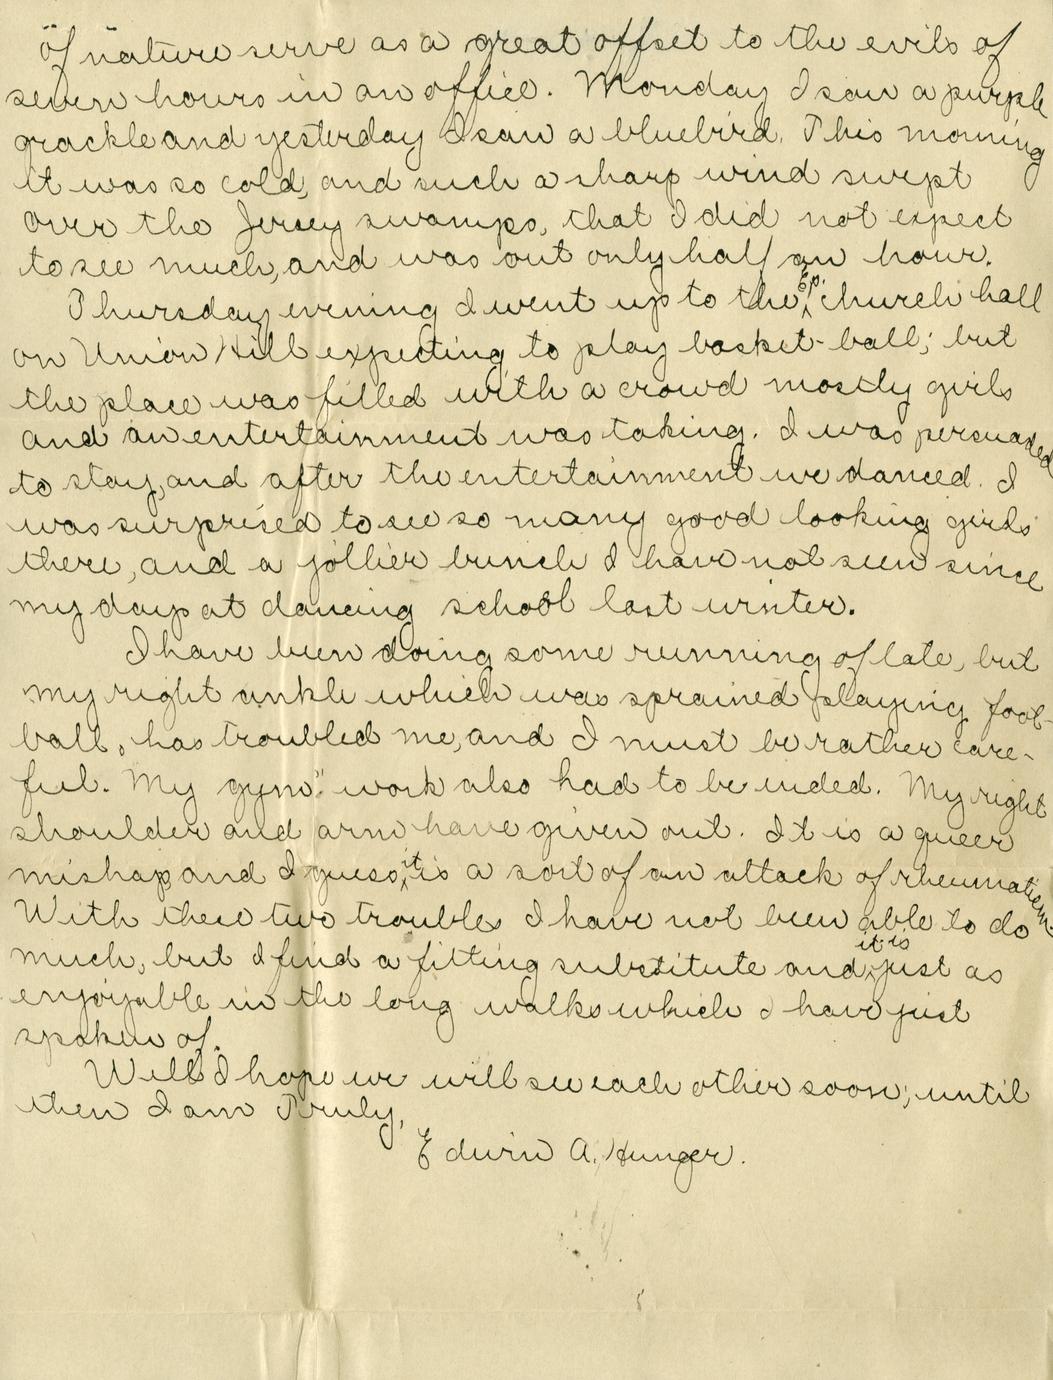 of nature serve as a great offset to the evils of
seven hours in an office. Monday I saw a purple
grackle and yesterday I saw a bluebird. This morning
it was so cold, and such a sharp wind swept
over the Jersey swamps, that I did not expect
to see much, and was out only half an hour.
Thursday evening I went up to the Ep. church hall
on Union Hill expecting to play basket-ball; but
the place was filled with a crowd mostly girls
and an entertainment was taking. I was persuaded
to stay, and after the entertainment we danced. I
was surprised to see so many good looking girls
there, and a jollier bunch I have not seen since
my days at dancing school last winter.
I have been doing some running of late, but
my right ankle which was sprained playing foot-
ball, has troubled me, and I must be rather care-
ful. My gym" work also had to be ended. My right
shoulder and arm have given out. It is a queer
mishap and I guess it is a sort of an attack of rheumatism.
With these two troubles I have not been able to do
much, but I find a fitting substitute and it is just as
enjoyable in the long walks which I have just
spoken of.
Well I hope we will see each other soon; until
then I am Truly,
Edwin A. Hunger.